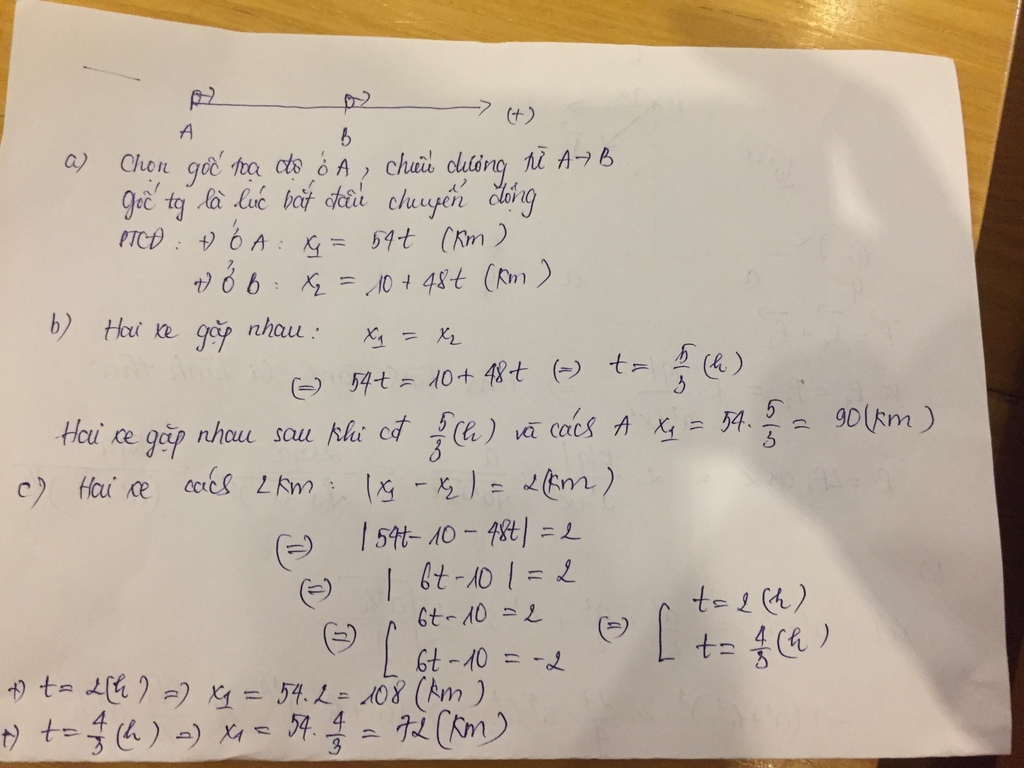 A B (+)
a) Chọn gốc tọa độ ở A, chiều dương từ A → B
gốc tg là lúc bắt đầu chuyển động
PTCĐ: +) ở A: x₁ = 54t (km)
+) ở B: x₂ = 10 + 48t (km)
b) Hai xe gặp nhau: x₁ = x₂
(=) 54t = 10 + 48t (=) t = 5/3 (h)
Hai xe gặp nhau sau khi cđ 5/3 (h) và cách A x₁ = 54. 5/3 = 90 (km)
c) Hai xe cách 2km: |x₁ - x₂| = 2(km)
(=) |54t - 10 - 48t| = 2
(=) |6t - 10| = 2
(=) [ 6t - 10 = 2 (=) [ t = 2 (h)
6t - 10 = -2 t = 4/3 (h)
+) t = 2(h) => x₁ = 54.2 = 108 (km)
+) t = 4/3 (h) => x₁ = 54. 4/3 = 72 (km)